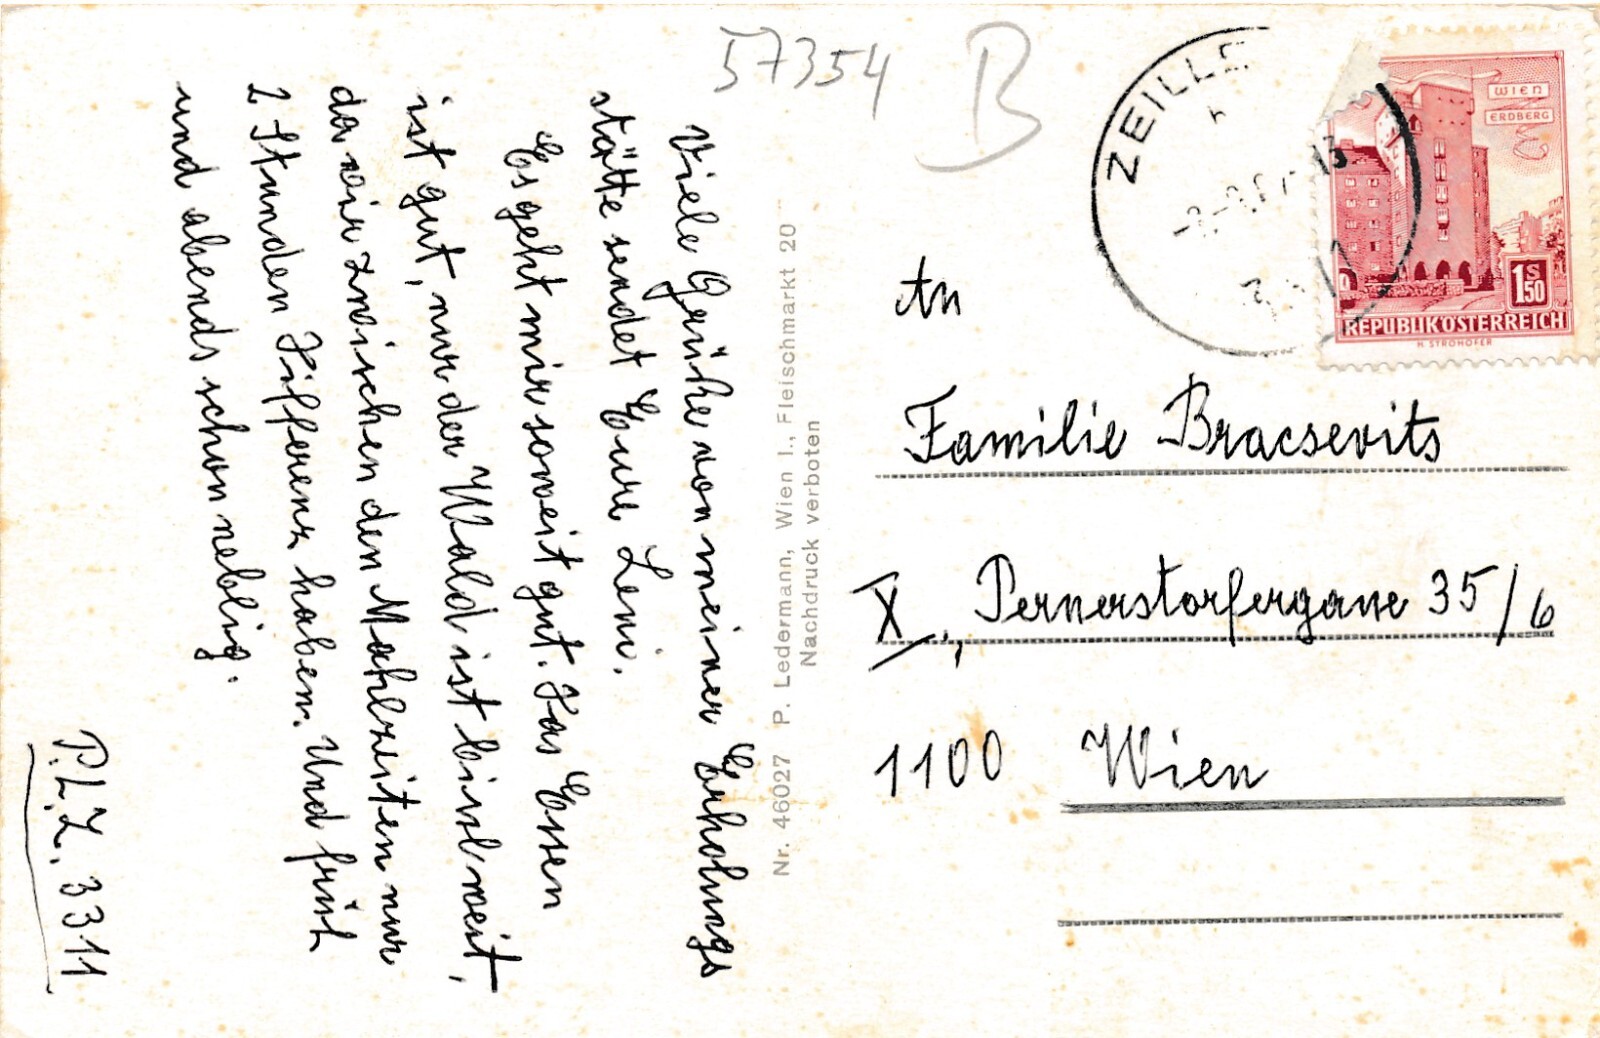 57354 B
Viele Grüße von meiner Erholungs
stätte sendet Eure Leni.
Es geht mir soweit gut. Das Essen
ist gut, nur der Wald ist bissl weit,
da wir zwischen den Mahlzeiten nur
2 Stunden Differenz haben. Und früh
und abends schon neblig.
P.L.Z. 3311
Nr. 46027 P. Ledermann, Wien I., Fleischmarkt 20
Nachdruck verboten
ZEILLE
WIEN
ERDBERG
1S50
REPUBLIK ÖSTERREICH
H. STROHOFER
An
Familie Bracsevits
X., Pernerstorfergasse 35/6
1100 Wien